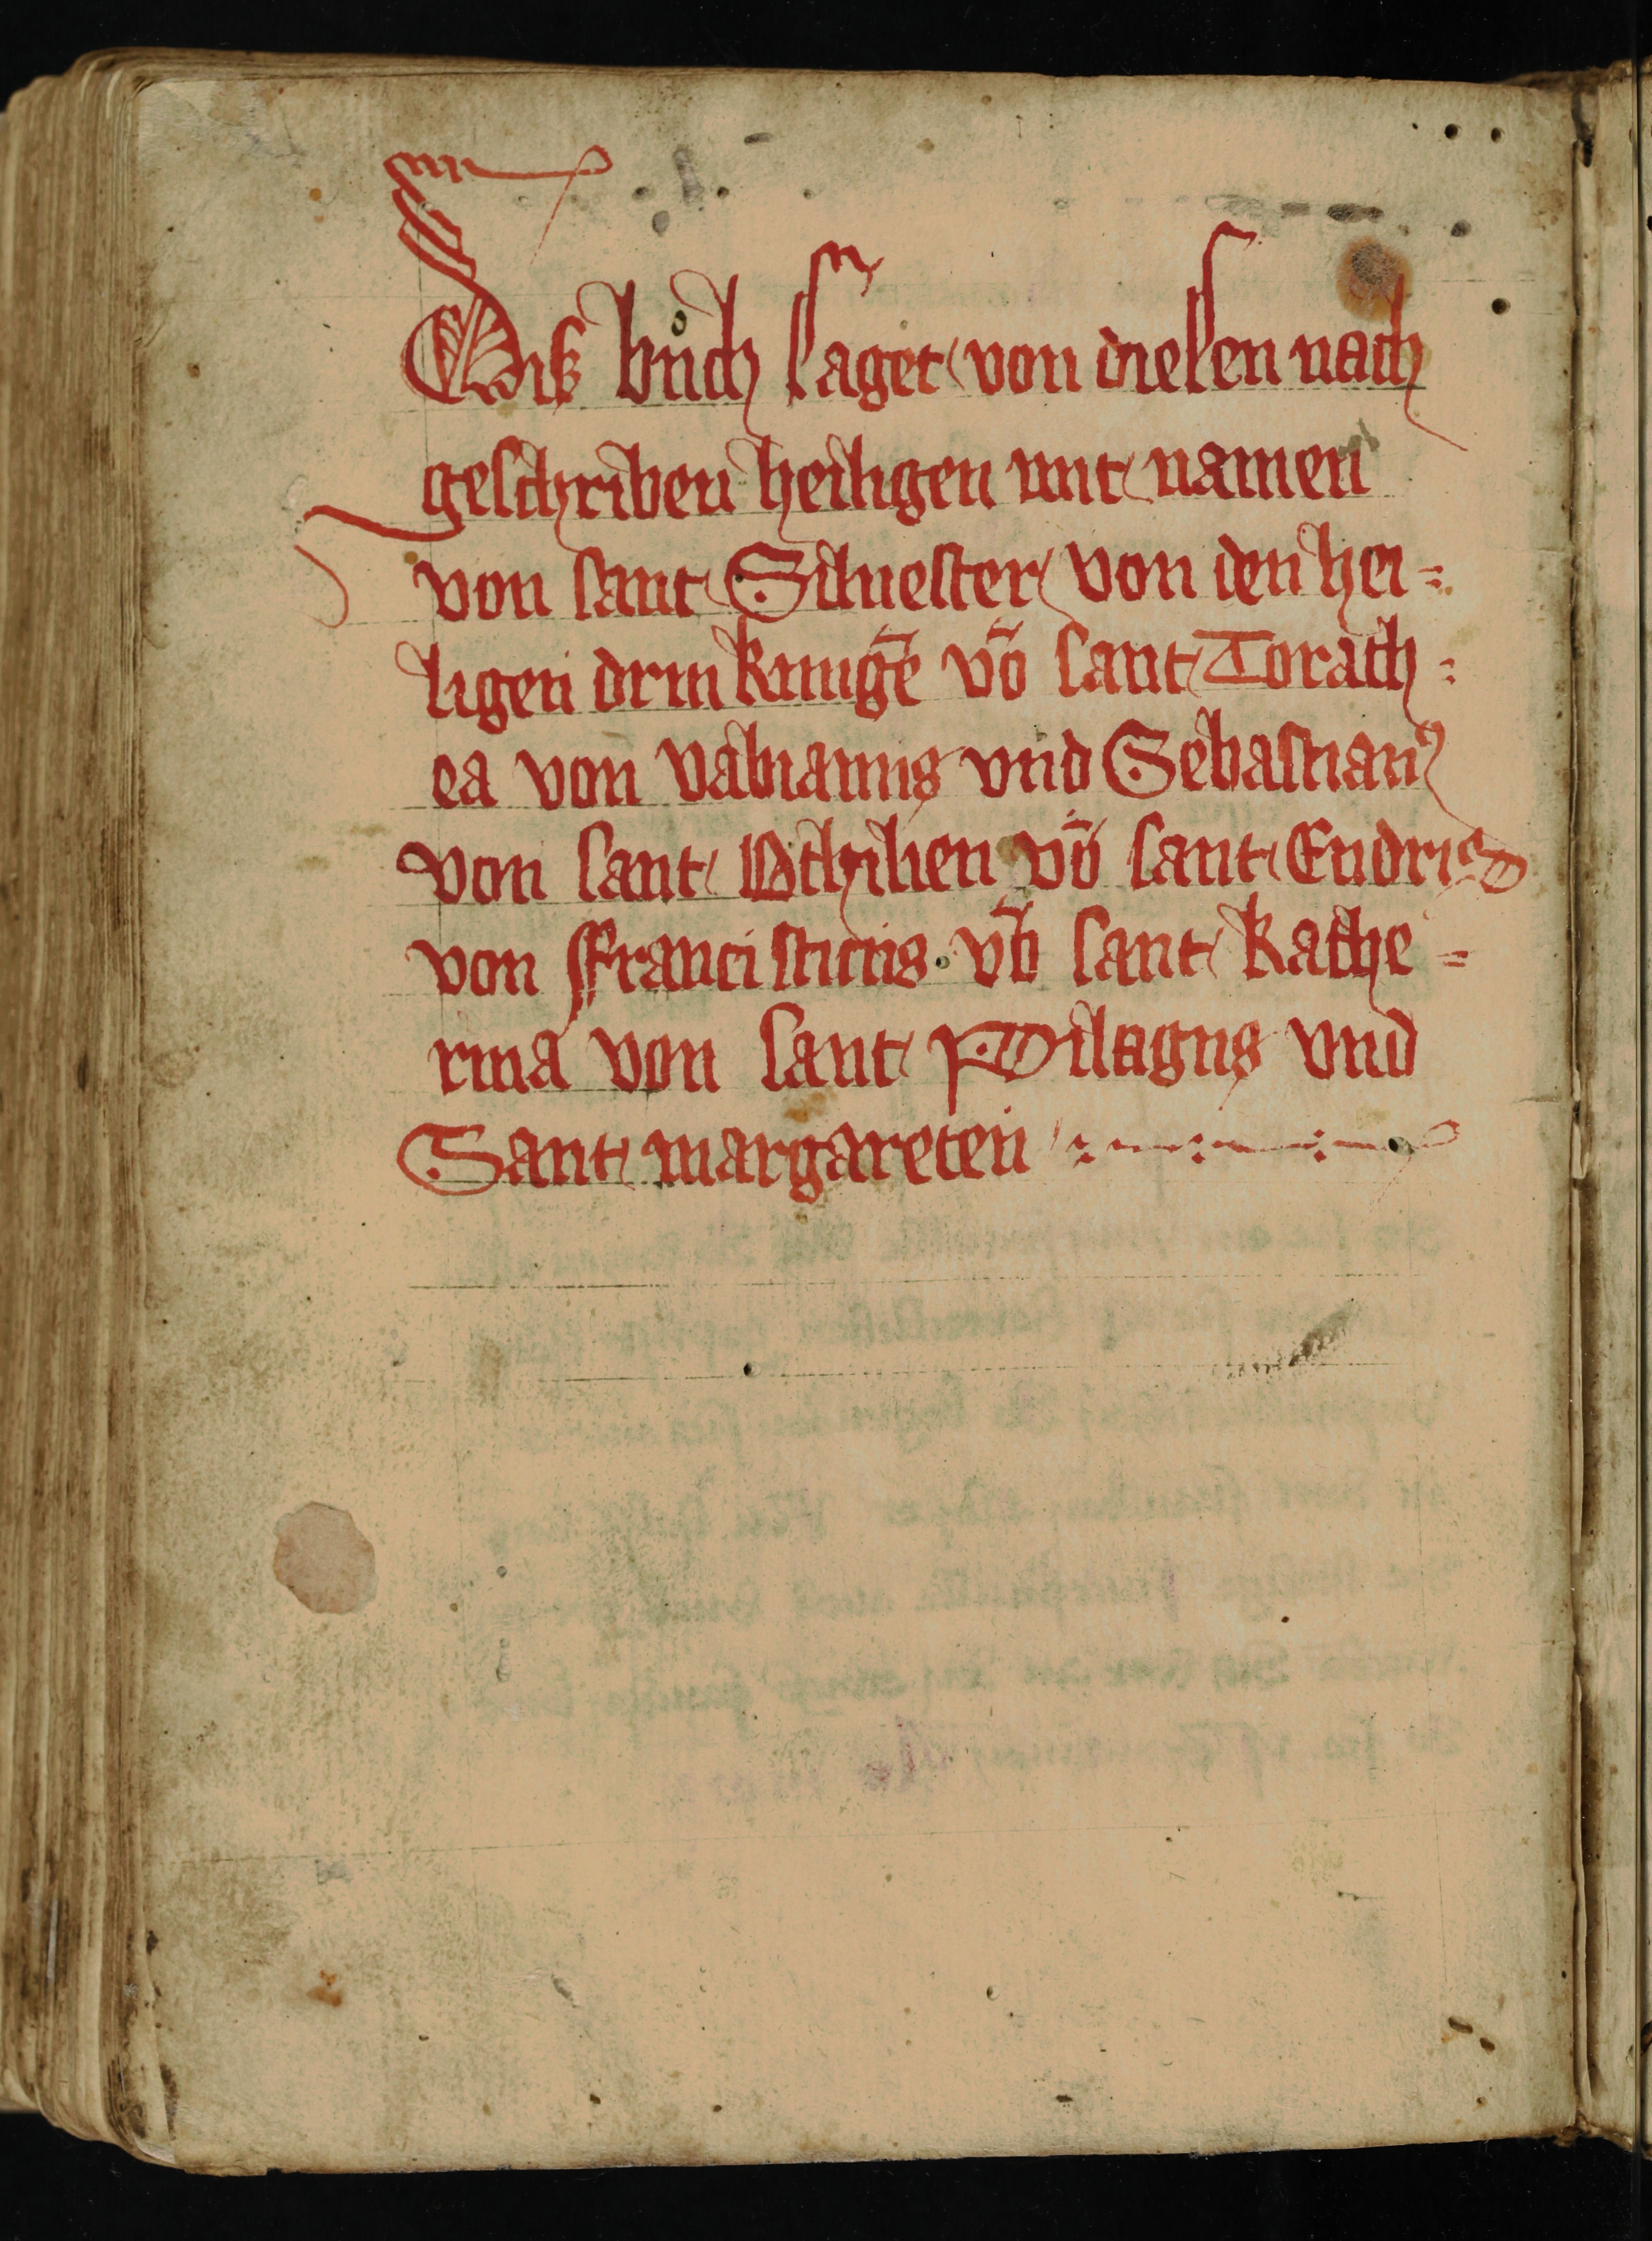 Dis bůch saget von diesen nach
geschriben heiligen mit namen
von sant Siluester von den hei=
ligen drin kunigē vō sant Torath=
ea von vabianus vnd Sebastianꝰ
von sant Othilien vō sant Endris
von ffrancisticus vō sant kathe=
rina von sant Pilagus vnd
Sant margareten